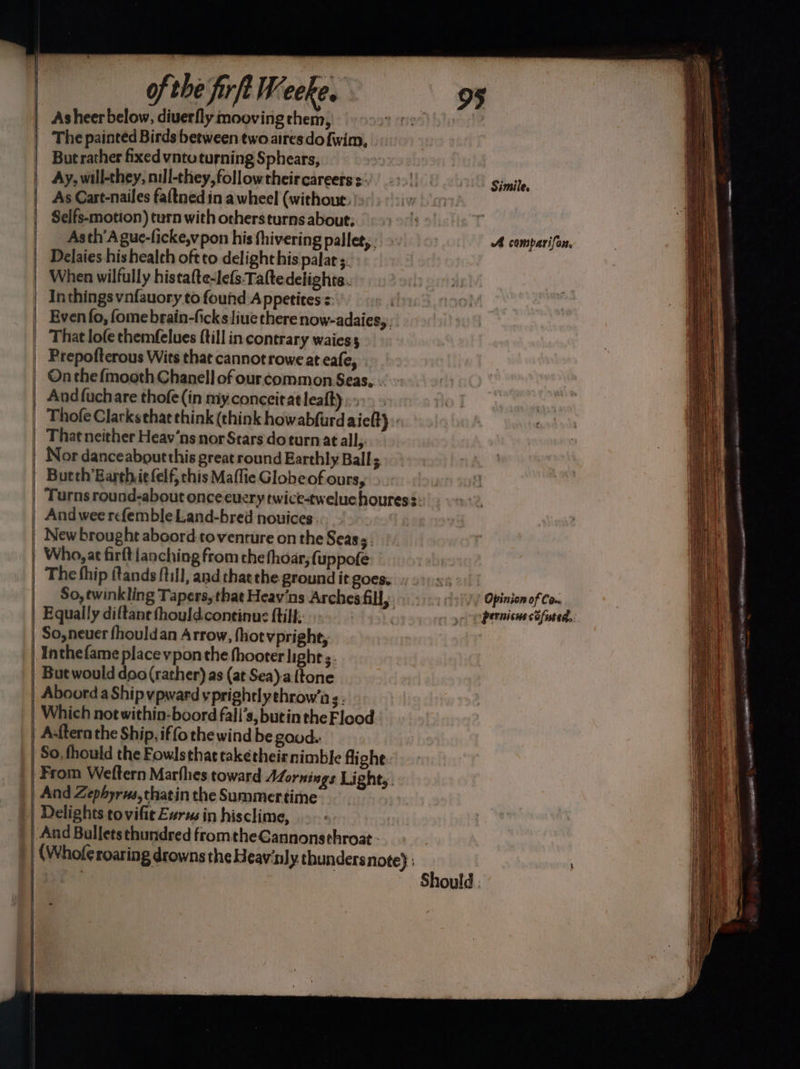 of the firſt Weeke. 95
As heer below, diuerſly mooving them,
The painted Birds between two aires do ſwim,
But rather fixed vnto turning Sphears,
Ay, will-they, nill-they, follow their careers:
Simile.
As Cart-nailes faſtned in a wheel (without
Selfs-motion) turn with others turns about.
As th'Ague-ſicke, vpon his ſhivering pallet,
A compariſon.
Delaies his health oft to delight his palat;
When wilfully his taſte-leſs Taſte delights
In things vnſauory to found Appetites:
Even ſo, ſome brain-ſicks liue there now-adaies,
That loſe themſelues ſtill in contrary waies;
Prepoſterous Wits that cannot rowe at eaſe,
On the ſmooth Chanell of our common Seas.
And ſuch are thoſe (in my conceit at leaſt)
Thoſe Clarks that think (think how abſurd a ieſt)
That neither Heav'ns nor Stars do turn at all,
Nor dance about this great round Earthly Ball;
But th'Earth it ſelf, this Maſſie Globe of ours,
Turns round-about once euery twice-twelue houres:
And wee reſemble Land-bred nouices
New brought aboord to venture on the Seas;
Who, at firſt lanching from the ſhoar, ſuppoſe
The ſhip ſtands ſtill, and that the ground it goes.
So, twinkling Tapers, that Heav'ns Arches fill,
Opinion of Co-
Equally diſtant ſhould continue ſtill.
pernicus cõfuted.
So, neuer ſhould an Arrow, ſhot vpright,
In the ſame place vpon the ſhooter light;
But would doo (rather) as (at Sea) a ſtone
Aboord a Ship vpward vprightly throw'n;
Which not within-boord fall's, but in the Flood
A-ſtern the Ship, if ſo the wind be good.
So, ſhould the Fowls that take their nimble flight
From Weſtern Marſhes toward Mornings Light,
And Zephyrus, that in the Summer time
Delights to viſit Eurus in his clime,
And Bullets thundred from the Cannons throat
(Whoſe roaring drowns the Heav'nly thunders note)
Should